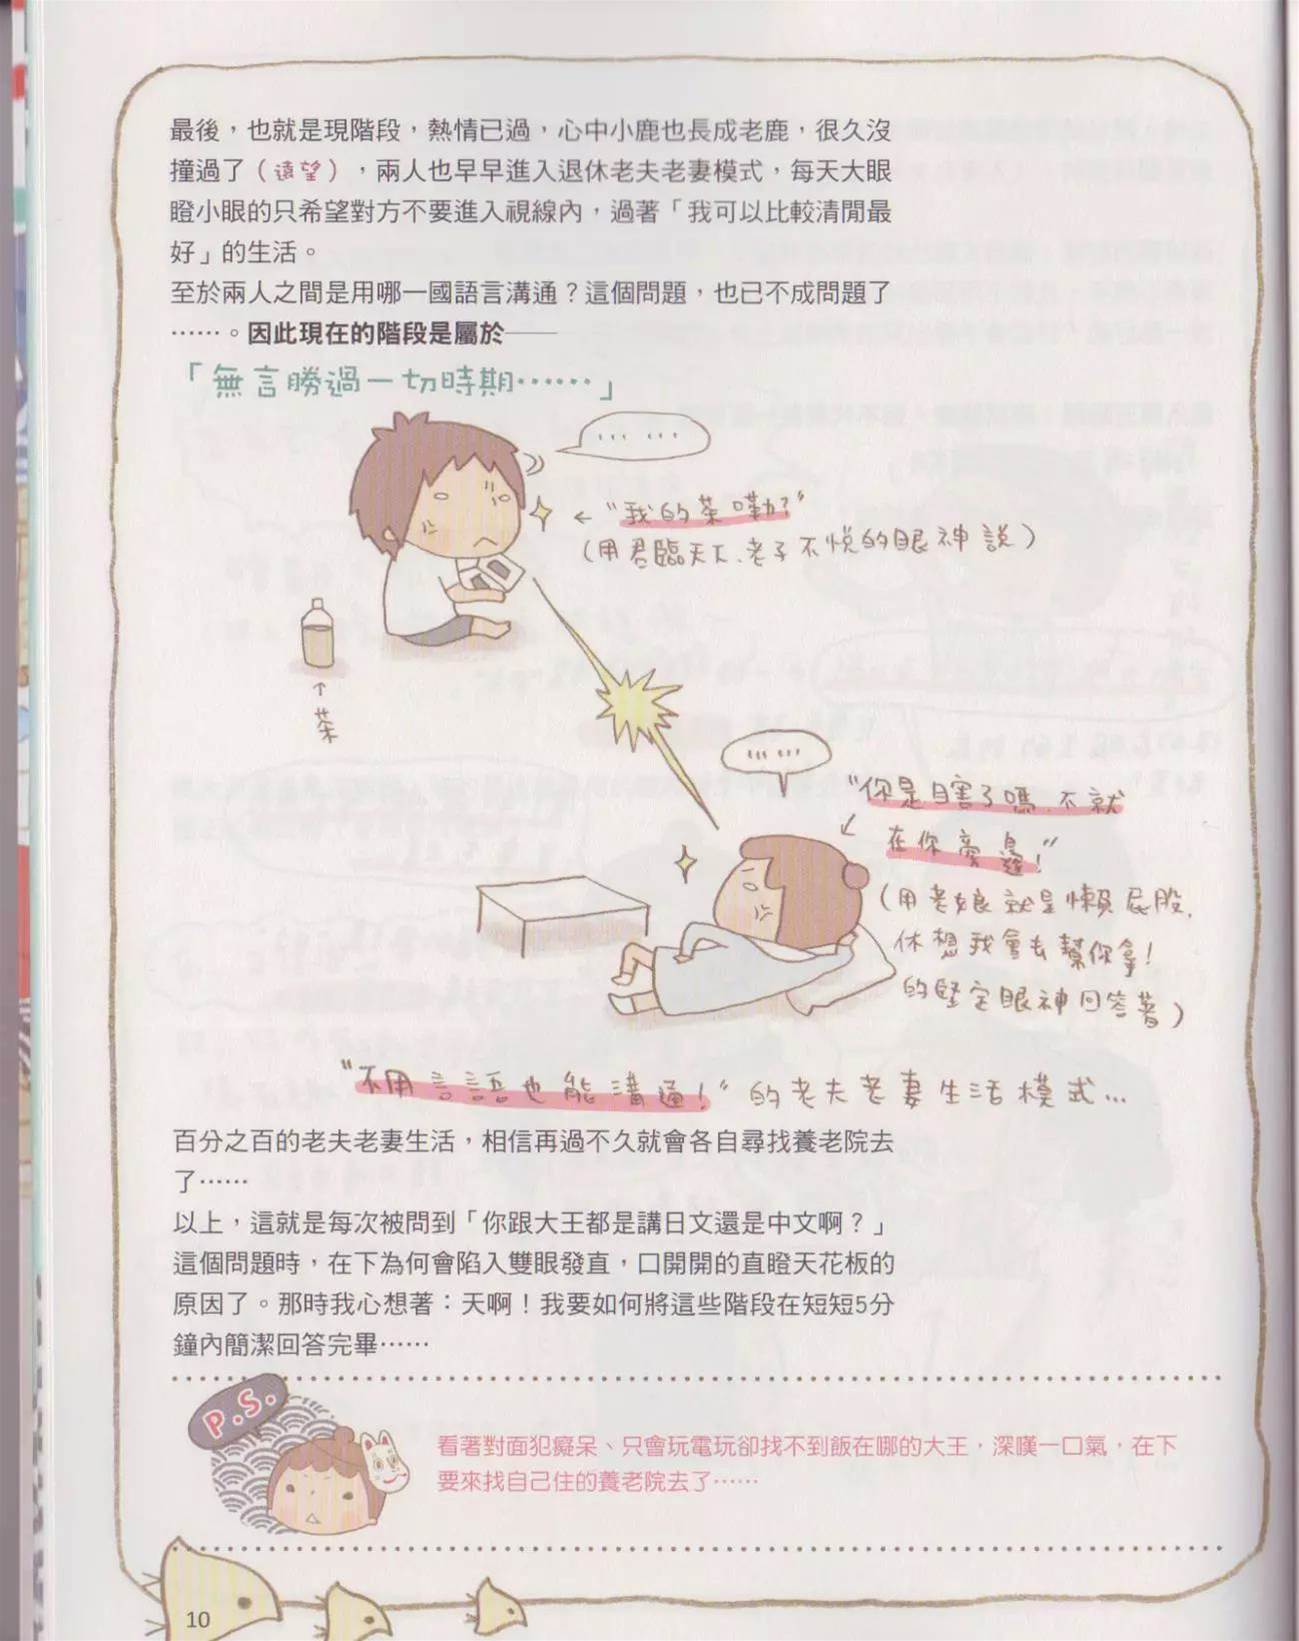 最後，也就是現階段，熱情已過，心中小鹿也長成老鹿，很久沒
撞過了（遠望），兩人也早早進入退休老夫老妻模式，每天大眼
瞪小眼的只希望對方不要進入視線內，過著「我可以比較清閒最
好」的生活。
至於兩人之間是用哪一國語言溝通？這個問題，也已不成問題了
……。因此現在的階段是屬於——
「無言勝過一切時期……」
……
←"我的茶嘞？"
（用君臨天下、老子不悅的眼神說）
↑
茶
……
"你是瞎了嗎、不就
在你旁邊！"
（用老娘就是懶屁股，
休想我會去幫你拿！
的堅定眼神回答著）
"不用言語也能溝通！"的老夫老妻生活模式…
百分之百的老夫老妻生活，相信再過不久就會各自尋找養老院去
了……
以上，這就是每次被問到「你跟大王都是講日文還是中文啊？」
這個問題時，在下為何會陷入雙眼發直，口開開的直瞪天花板的
原因了。那時我心想著：天啊！我要如何將這些階段在短短5分
鐘內簡潔回答完畢……
P.S.
看著對面犯癡呆、只會玩電玩卻找不到飯在哪的大王，深嘆一口氣，在下
要來找自己住的養老院去了……
10